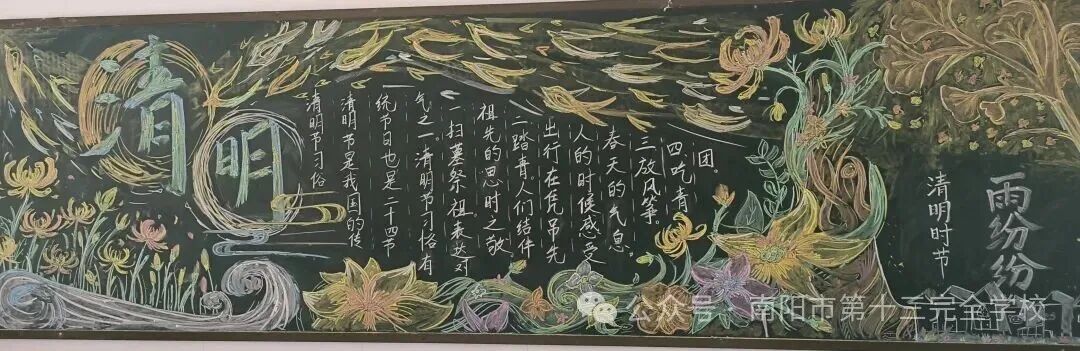 清明
清明节习俗
清明节是我国的传
统节日也是二十四节
气之一。清明节习俗有
一扫墓祭祖表达对
祖先的思时之敬
二踏青。人们结伴
出行在凭吊先
人的时候感受
春天的气息。
三放风筝。
四吃青
团。
清明时节
雨纷纷
公众号·南阳市第十三完全学校